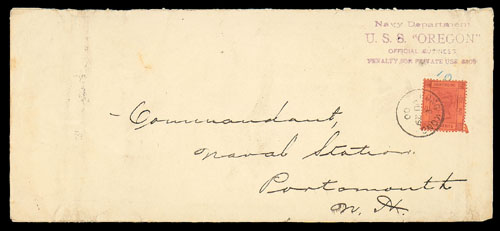 Navy Department
U. S. S. "OREGON"
OFFICIAL BUSINESS
PENALTY FOR PRIVATE USE $300
10
Commandant,
Naval Station
Portsmouth
N. H.